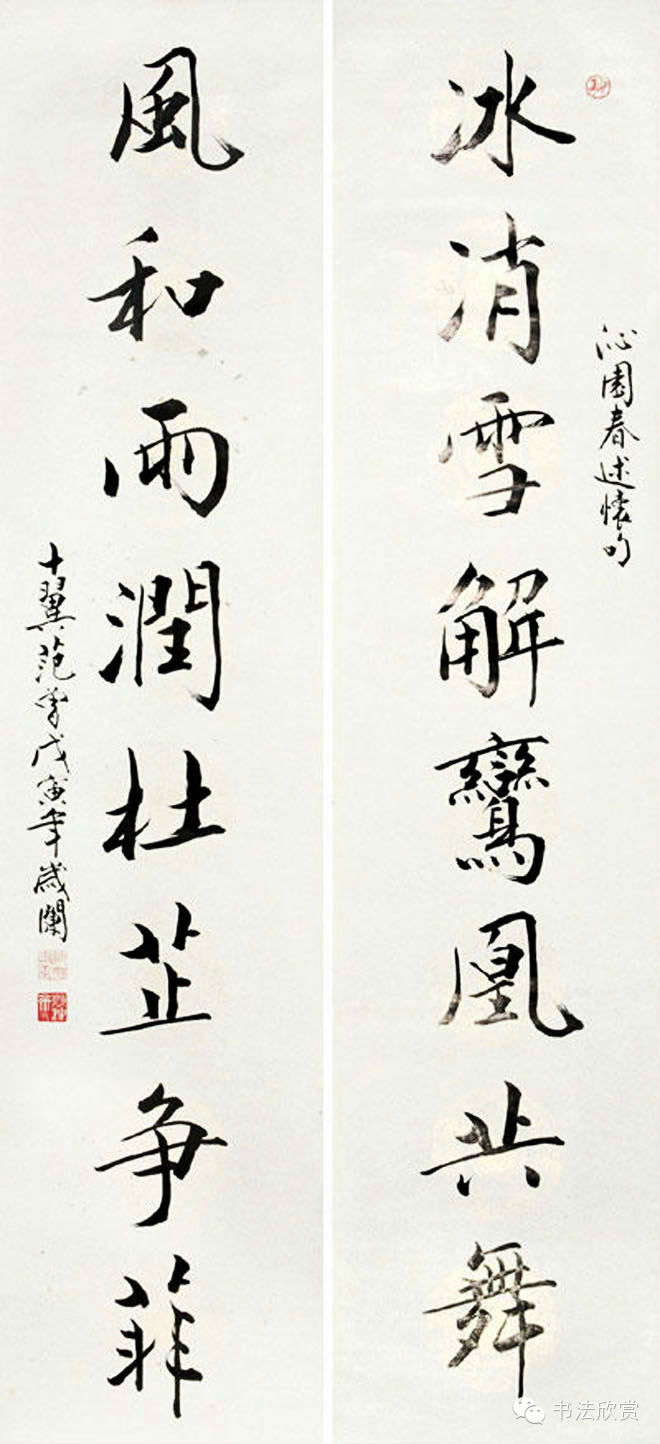 沁園春述懷句
冰消雪解鸞凰共舞
風和雨潤杜芷争菲
十翼范曾戊寅年歲闌
书法欣赏